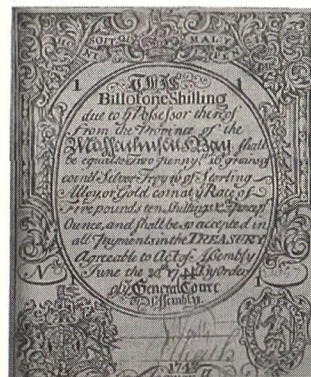 SOIT QUI MAL Y
1 THIS 1
Bill of one Shilling
due to ye Possessor thereof
from the Province of the
Massachusets Bay, shall
be equal to Two penny wt 16 grains of
coind Silver Troy wt of Sterling
Alloy, or Gold coin at ye Rate of
Five pounds ten Shillings &
Ounce, and shall be so accepted in
all Payments in the TREASURY
Agreeable to Act of Assembly
No June the 20th 1744 By order
of ye General Court 1
or Assembly.
174